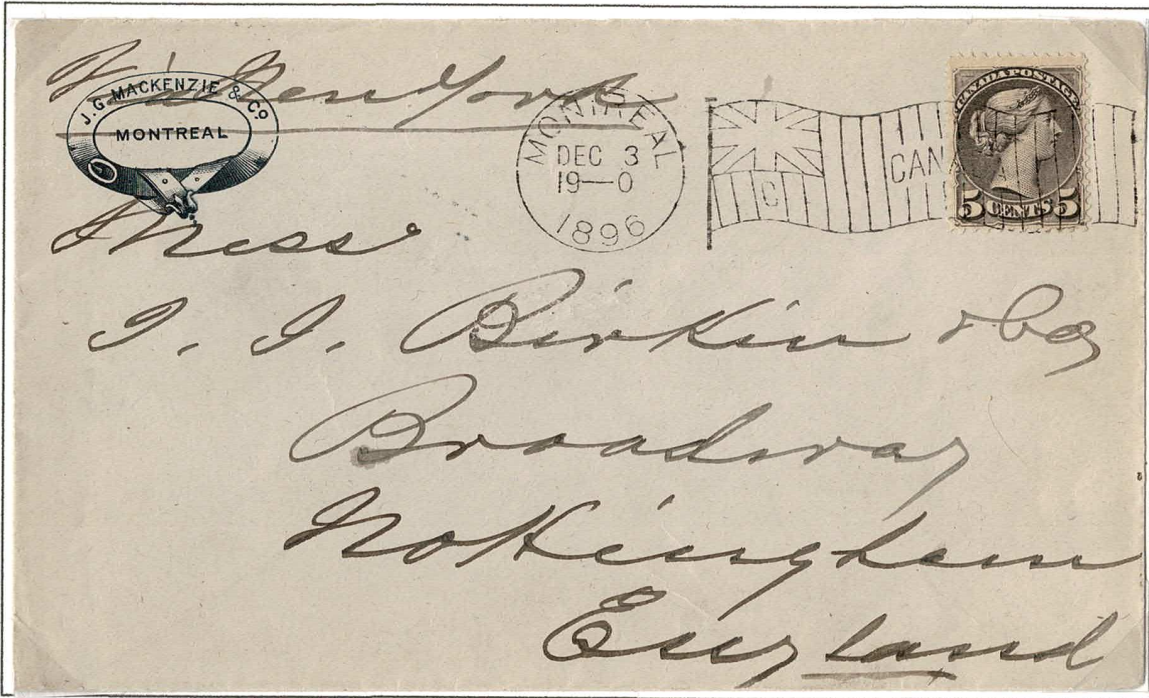 Via New York
J. G. MACKENZIE & Co.
MONTREAL
MONTREAL
DEC 3
19—0
1896
C
CANADA
CANADA POSTAGE
5 CENTS 5
Mess
I. I. Birkin & Co
Broadway
Nottingham
England